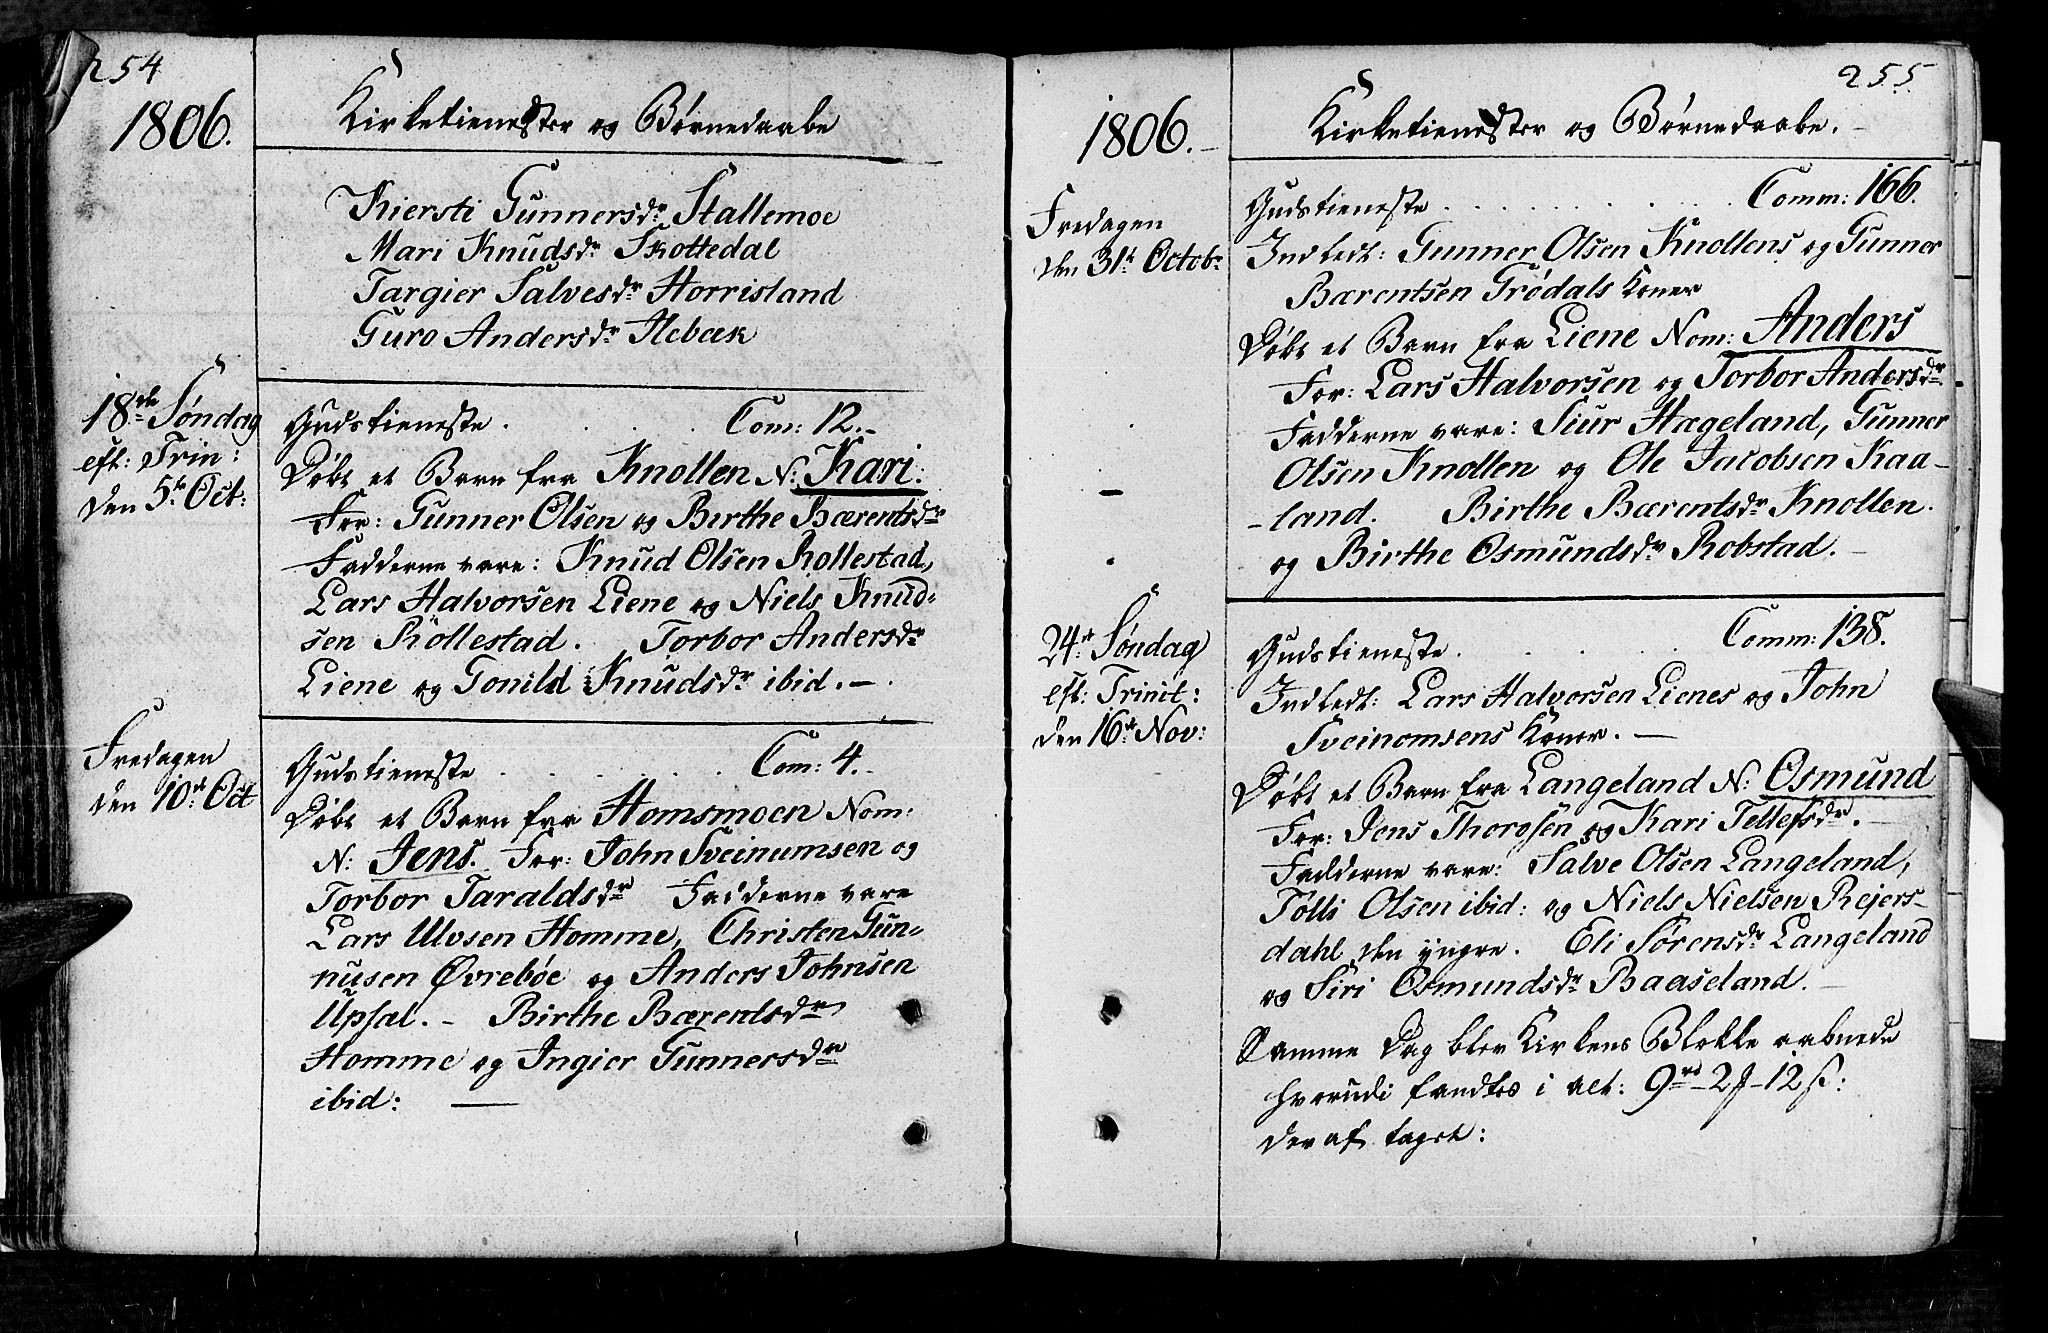 254
1806.
Kirketienester og Børnedaabe
Kiersti Gunnersdr Stallemoe
Mari Knudsdr Skottedal
Targier Salvesdr Horrisland
Guro Andersdr Ilebæk
18de Søndag
eft: Trin:
den 5te Oct:
Gudstieneste . . . . Com: 12.-
Døbt et Barn fra Knollen N: Kari.
For: Gunner Olsen og Birthe Bærentsdr
Fadderne vare: Knud Olsen Rollestad,
Lars Halvorsen Liene og Niels Knud-
sen Röllestad. Torbor Andersdr
Liene og Gonild Knudsdr ibid.-
Fredagen
den 10de Oct
Gudstieneste . . . . . . Com: 4.-
Døbt et Barn fra Homsmoen Nom:
N: Jens. For: John Sveinumsen og
Torbor Taraldsdr Fadderne vare
Lars Ulvsen Homme, Christen Gun-
nusen Øvrebøe og Anders Johnsen
Upsal. - Birthe Bærentsdr
Homme og Ingier Gunnersdr
ibid: —
255
1806.
Kirketienester og Børnedaabe.
Fredagen
den 31te Octobr
Gudstieneste . . . . . . . . Comm: 166.
Indledt: Gunner Olsen Knollens og Gunner
Bærentsen Trødals Koner
Døbt et Barn fra Liene Nom: Anders
For: Lars Halvorsen og Torbor Andersdr
Fadderne vare: Siur Hægeland, Gunner
Olsen Knollen og Ole Jacobsen Kaa-
-land. Birthe Bærentsdr Knollen.
og Birthe Osmundsdr Robstad. -
24de Søndag
eft: Trinit:
den 16de Nov:
Gudstieneste . . . . Comm: 138.
Indledt: Lars Halvorsen Lienes og John
Sveinomsens Koner. —
Døbt et Barn fra Langeland N: Osmund
For: Jens Thorosen og Kari Tellefsdr.
Fadderne vare: Salve Olsen Langeland,
Tolli Olsen ibid: og Niels Nielsen Rejers-
dahl den yngre. Eli Sørensdr Langeland
og Siri Osmundsdr Baaseland. -
Samme Dag blev Kirkens Blokke aabnede
hvorudi fandtes i alt: 9rd - 2 - 12 ß:
deraf taget: